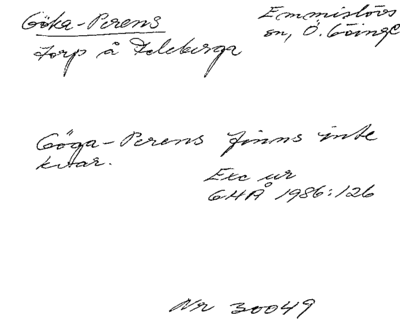 Göka-Perens
Emmislövs
sn, Ö. Göinge
Torp å Feleberga
Göga-Perens finns inte
kvar.
Exc ur
GHÅ 1986:126
Nr 30049